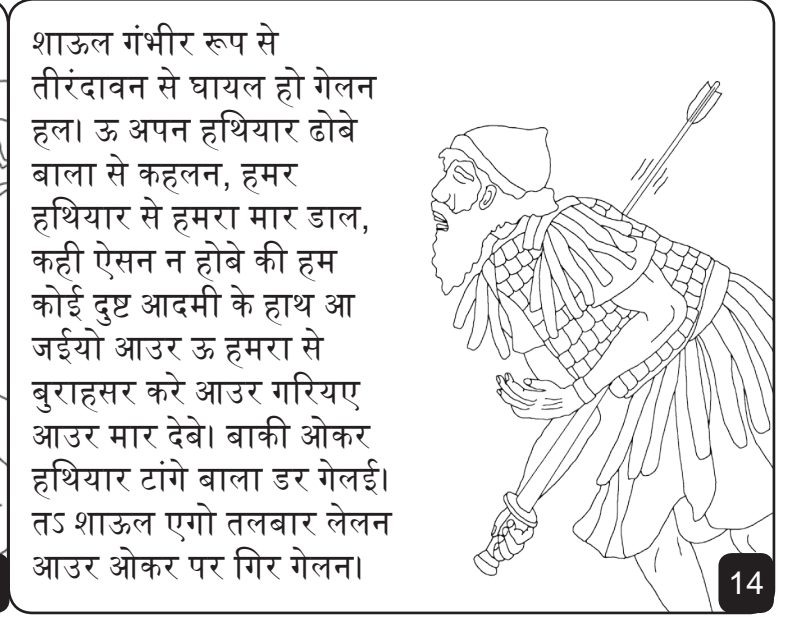 शाऊल गंभीर रूप से
तीरंदावन से घायल हो गेलन
हल। ऊ अपन हथियार ढोबे
बाला से कहलन, हमर
हथियार से हमरा मार डाल,
कही ऐसन न होबे की हम
कोई दुष्ट आदमी के हाथ आ
जईयो आउर ऊ हमरा से
बुराहसर करे आउर गरियए
आउर मार देबे। बाकी ओकर
हथियार टांगे बाला डर गेलई।
तऽ शाऊल एगो तलबार लेलन
आउर ओकर पर गिर गेलन।
14